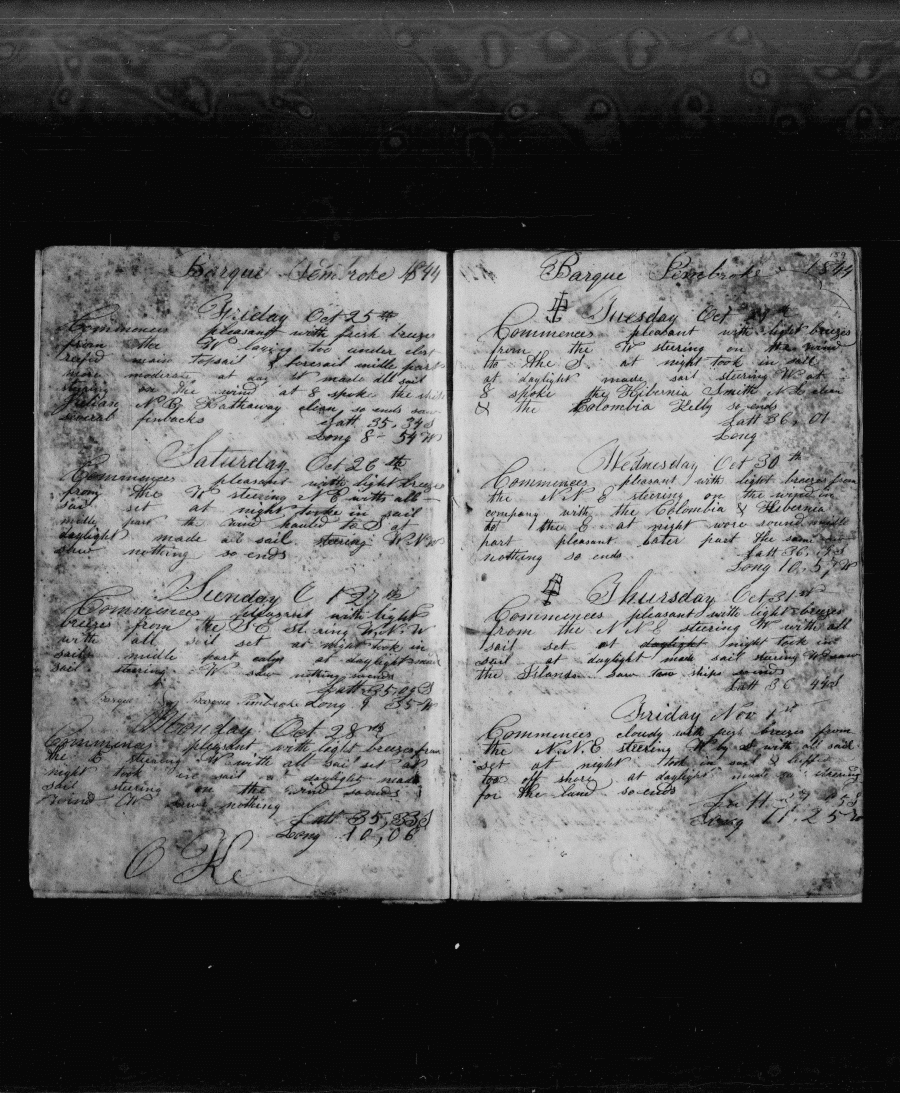 Barque Pembroke 1844
Friday Oct 25th
Commences pleasant with fresh breeze
from the W laying too under close
main topsail & foresail middle part
more moderate at day lt made all sail
on the wind at 8 spoke the ship
N B Hathaway clean so ends saw
several finbacks Latt 35,34 S
Long 8 - 54 W
Saturday Oct 26th
Commences pleasant with light breeze
from the W steering N E with all
sail set at night tooke in sail
middle part the wind hauled to S at
daylight made all sail steering W N W
saw nothing so ends
Sunday O 27th
Commences pleasant with light
breezes from the S E steering W N W
with all sail set at night took in
sail middle part calm at daylight made
sail steering W saw nothing
Latt 35-09 S
Barque Barque Pembroke Long 9 35 W
Monday Oct 28th
Commences pleasant with light breezes from
the E steering W with all sail set at
night took in sail at daylight made
sail steering on the wind so ends
saw nothing
Latt 35,33 S
Long 10,06
139
Barque Pembroke 1844
Tuesday Oct 29th
Commences pleasant with light breezes
from the W steering on the wind
to the S at night took in sail
at daylight made sail steering W at
8 spoke the Hibernia Smith N L clean
& the Colombia Kelly so ends
Latt 36,01
Long
Wednesday Oct 30th
Commences pleasant with light breezes from
the N N E steering on the wind in
company with the Colombia & Hibernia
to the E at night wore round middle
part pleasant later part the same saw
nothing so ends Latt 36,
Long 10.5, W
Thursday Oct 31st
Commences pleasant with light breezes
from the N N E steering W with all
sail set at daylight night took in
sail at daylight made sail steering W saw
the Island saw two ships
Latt 36 42 S
Friday Nov 1st
Commences cloudy with fresh breezes from
the N.N.E steering W by S with all sail
set at night took in sail & luft
too off shore at daylight made steering
for the land so ends
Latt 37 - 5 S
Long 11,25 W